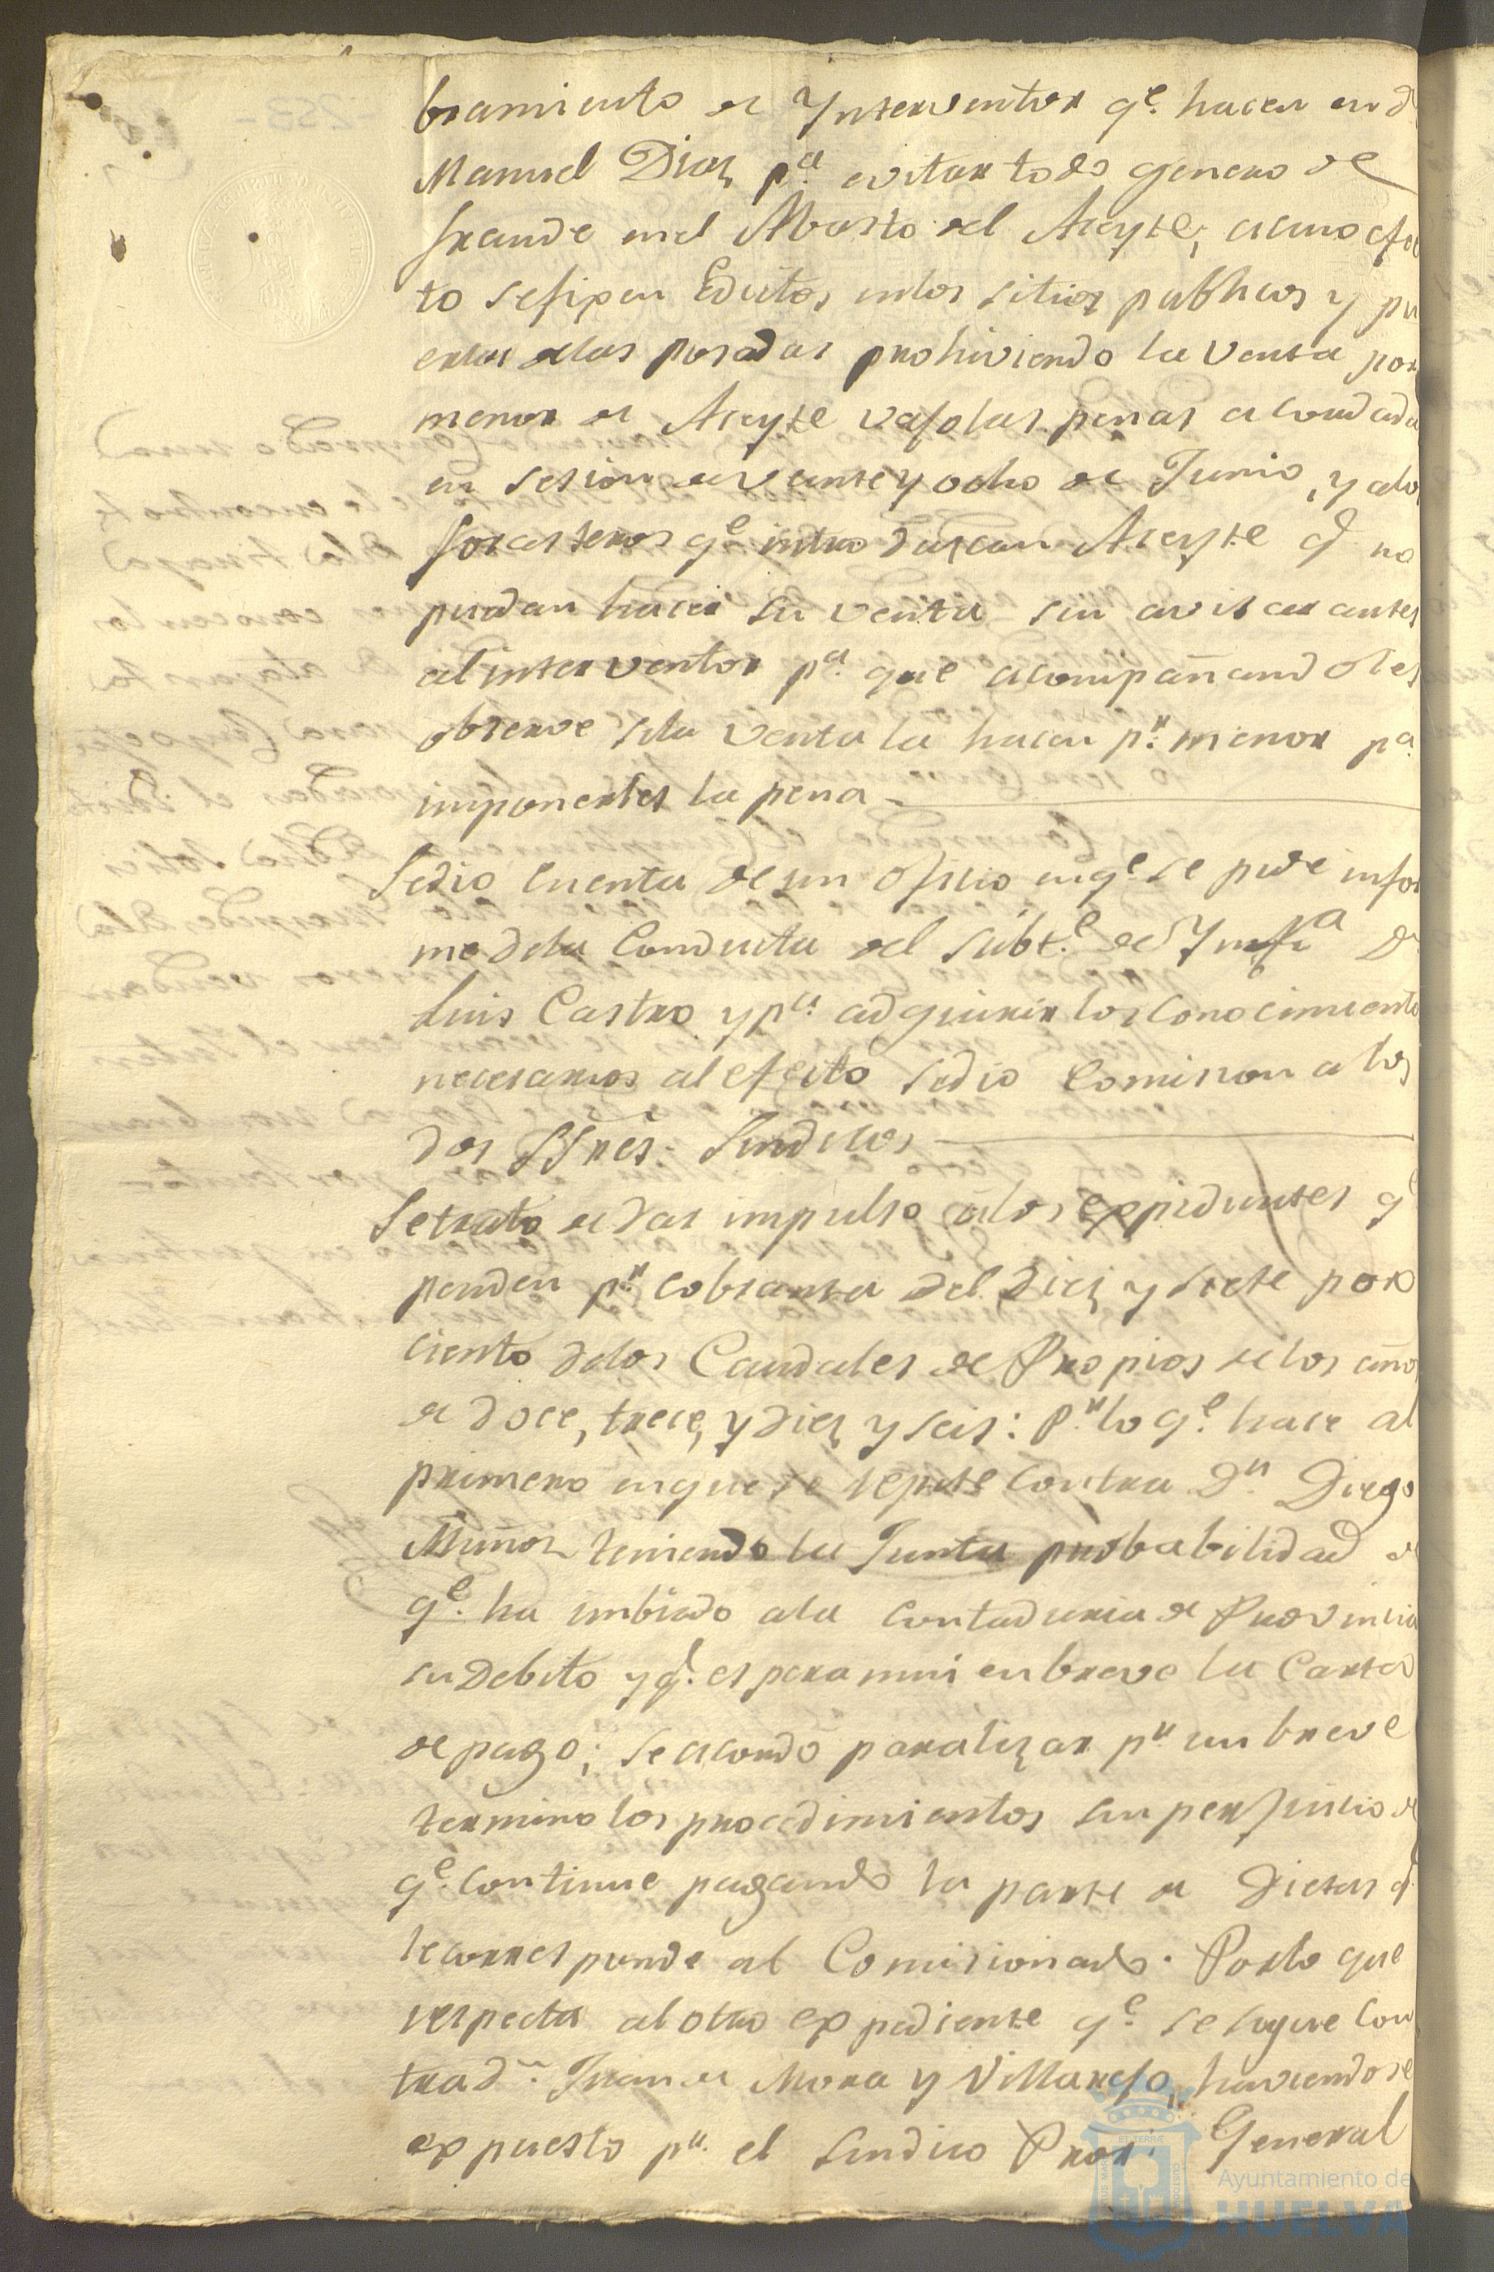 bramiento de Ynterventor q.e hacen en D.
Manuel Diaz p.a evitar todo genero de
fraude en el Abasto del Aceyte, a cuio efec
to se fixen Edictos en los sitios publicos y pu
ertas de las posadas prohiviendo la venta por
menor de Aceyte vajo las penas acordadas
en sesion de veinte y ocho de Junio, y a los
forasteros q.e introduzcan Aceyte q.e no
puedan hacer su venta sin avisar antes
al interventor p.a que acompañandoles
observe si la venta la hacen p.r menor p.a
imponerles la pena
Se dio cuenta de un oficio en q.e se pide infor
me de la Conducta del Subt.e de Ynf.a D.n
Luis Castro y p.a adquirir los conocimientos
necesarios al efecto se dio comision a los
dos SSres. Sindicos
Se trato de dar impulso a los expedientes q.e
penden p.r cobranza del diez y siete por
ciento de los Caudales de Propios de los años
de doce, trece, y diez y seis: P.r lo q.e hace al
primero en que se repite contra D.n Diego
Muñoz teniendo la Junta probabilidad de
q.e ha imbiado a la Contaduria de Provincia
su Debito y q.e espera mui en breve la Carta
de pago; se acordó paralizar p.r un breve
termino los procedimientos sin perjuicio de
q.e continue pagando la parte de Dietas q.e
le corresponde al Comisionado. Por lo que
respecta al otro expediente q.e se sigue con
tra D.n Juan de Mora y Villarejo, haviendose
expuesto p.r el Sindico Pror. General
Ayuntamiento de
HUELVA